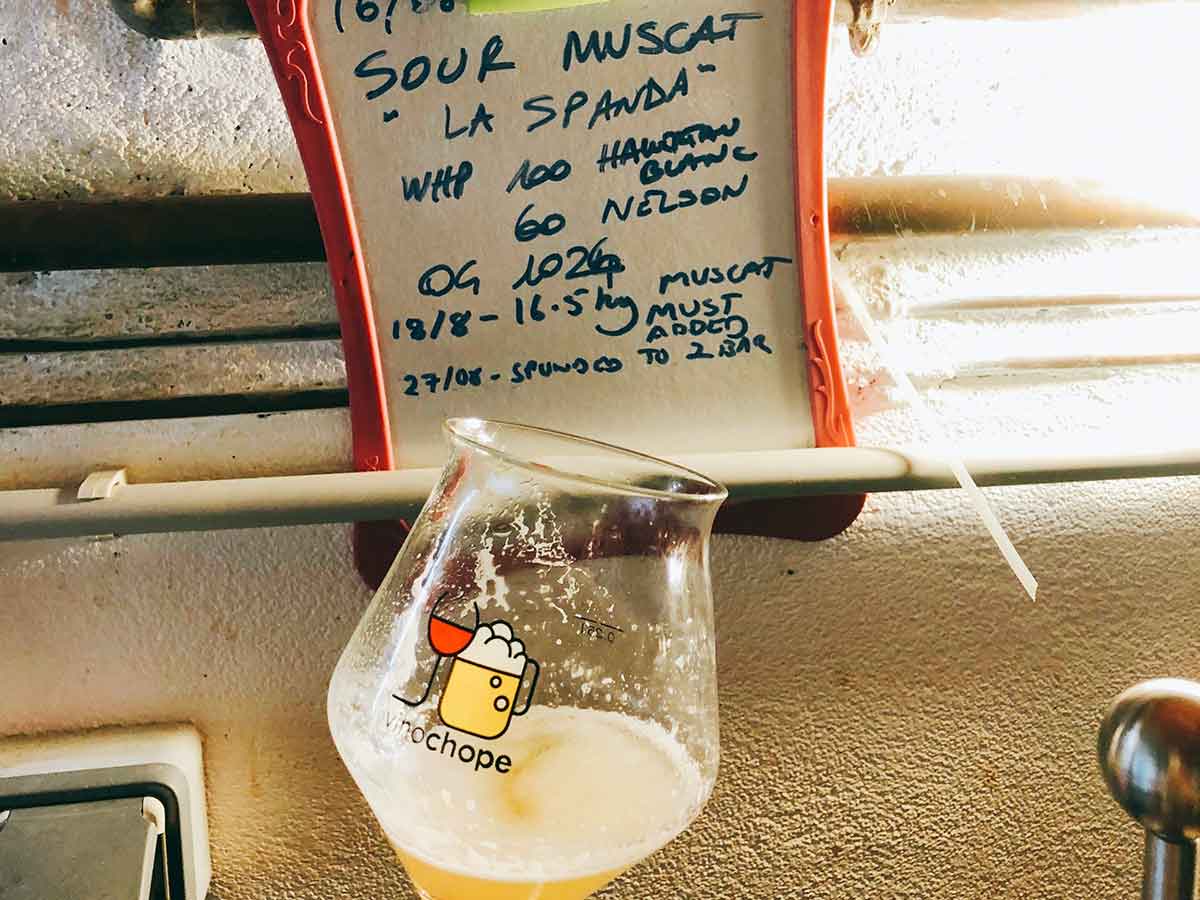 16/08
SOUR MUSCAT
"LA SPANDA"
WHP 100 HAWAIIAN
BLANC
60 NELSON
OG 1024
18/8 - 16.5 kg MUSCAT
MUST
ADDED
27/08 - SPUNDED TO 2 BAR
0.25l
vinochope